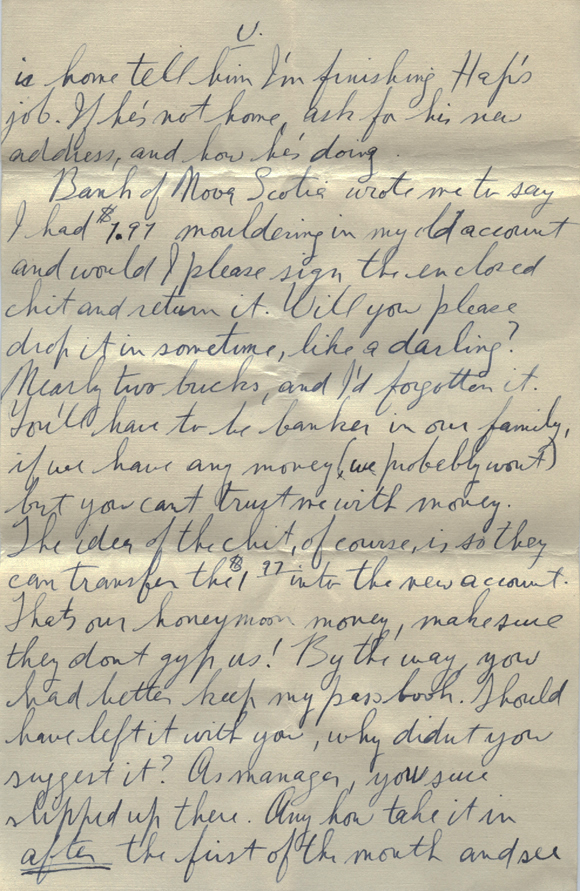 V.
is home tell him I'm finishing Haf's
job. If he's not home, ask for his new
address, and how he's doing.
Bank of Nova Scotia wrote me to say
I had $1.97 mouldering in my old account
and would I please sign the enclosed
chit and return it. Will you please
drop it in sometime, like a darling?
Nearly two bucks, and I'd forgotten it.
You'll have to be banker in our family,
if we have any money (we probebly wont)
but you cant trust me with money.
The idea of the chit, of course, is so they
can transfer the $1.97 into the new account.
Thats our honeymoon money, make sure
they dont gyp us! By the way, you
had better keep my passbook. I should
have left it with you, why didnt you
suggest it? As manager, you sure
slipped up there. Any how take it in
after the first of the month and see